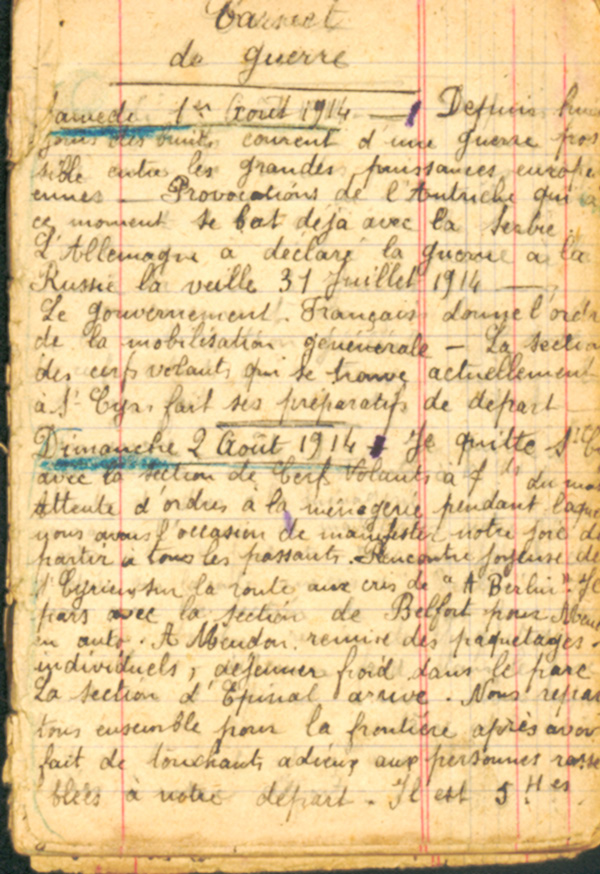 Carnet
de guerre
Samedi 1er Août 1914 — Depuis hui
jours des bruits courent d'une guerre pos
sible entre les grandes puissances europé
ennes — Provocations de l'Autriche qui a
ce moment se bat déjà avec la Serbie.
L'Allemagne a déclaré la guerre à la
Russie la veille 31 Juillet 1914 —
Le gouvernement Français donne l'ordr
de la mobilisation générale — La section
des cerfs volants qui se trouve actuellement
à St Cyr, fait ses préparatifs de départ
Dimanche 2 Août 1914. Je quitte St C
avec la section de Cerf Volants à
Attente d'ordres à la ménagerie pendant laque
nous avons l'occasion de manifester notre joie de
partir à tous les passants. Rencontre joyeuse de
St Cyriens sur la route aux cris de "A Berlin". Je
pars avec la section de Belfort pour Meu
en auto. A Meudon, remise des paquetages
individuels, déjeuner froid dans le parc
La section d'Epinal arrive. Nous repar
tons ensemble pour la frontière après avoir
fait de touchants adieux aux personnes rasse
blées à notre départ. Il est 5 Hes